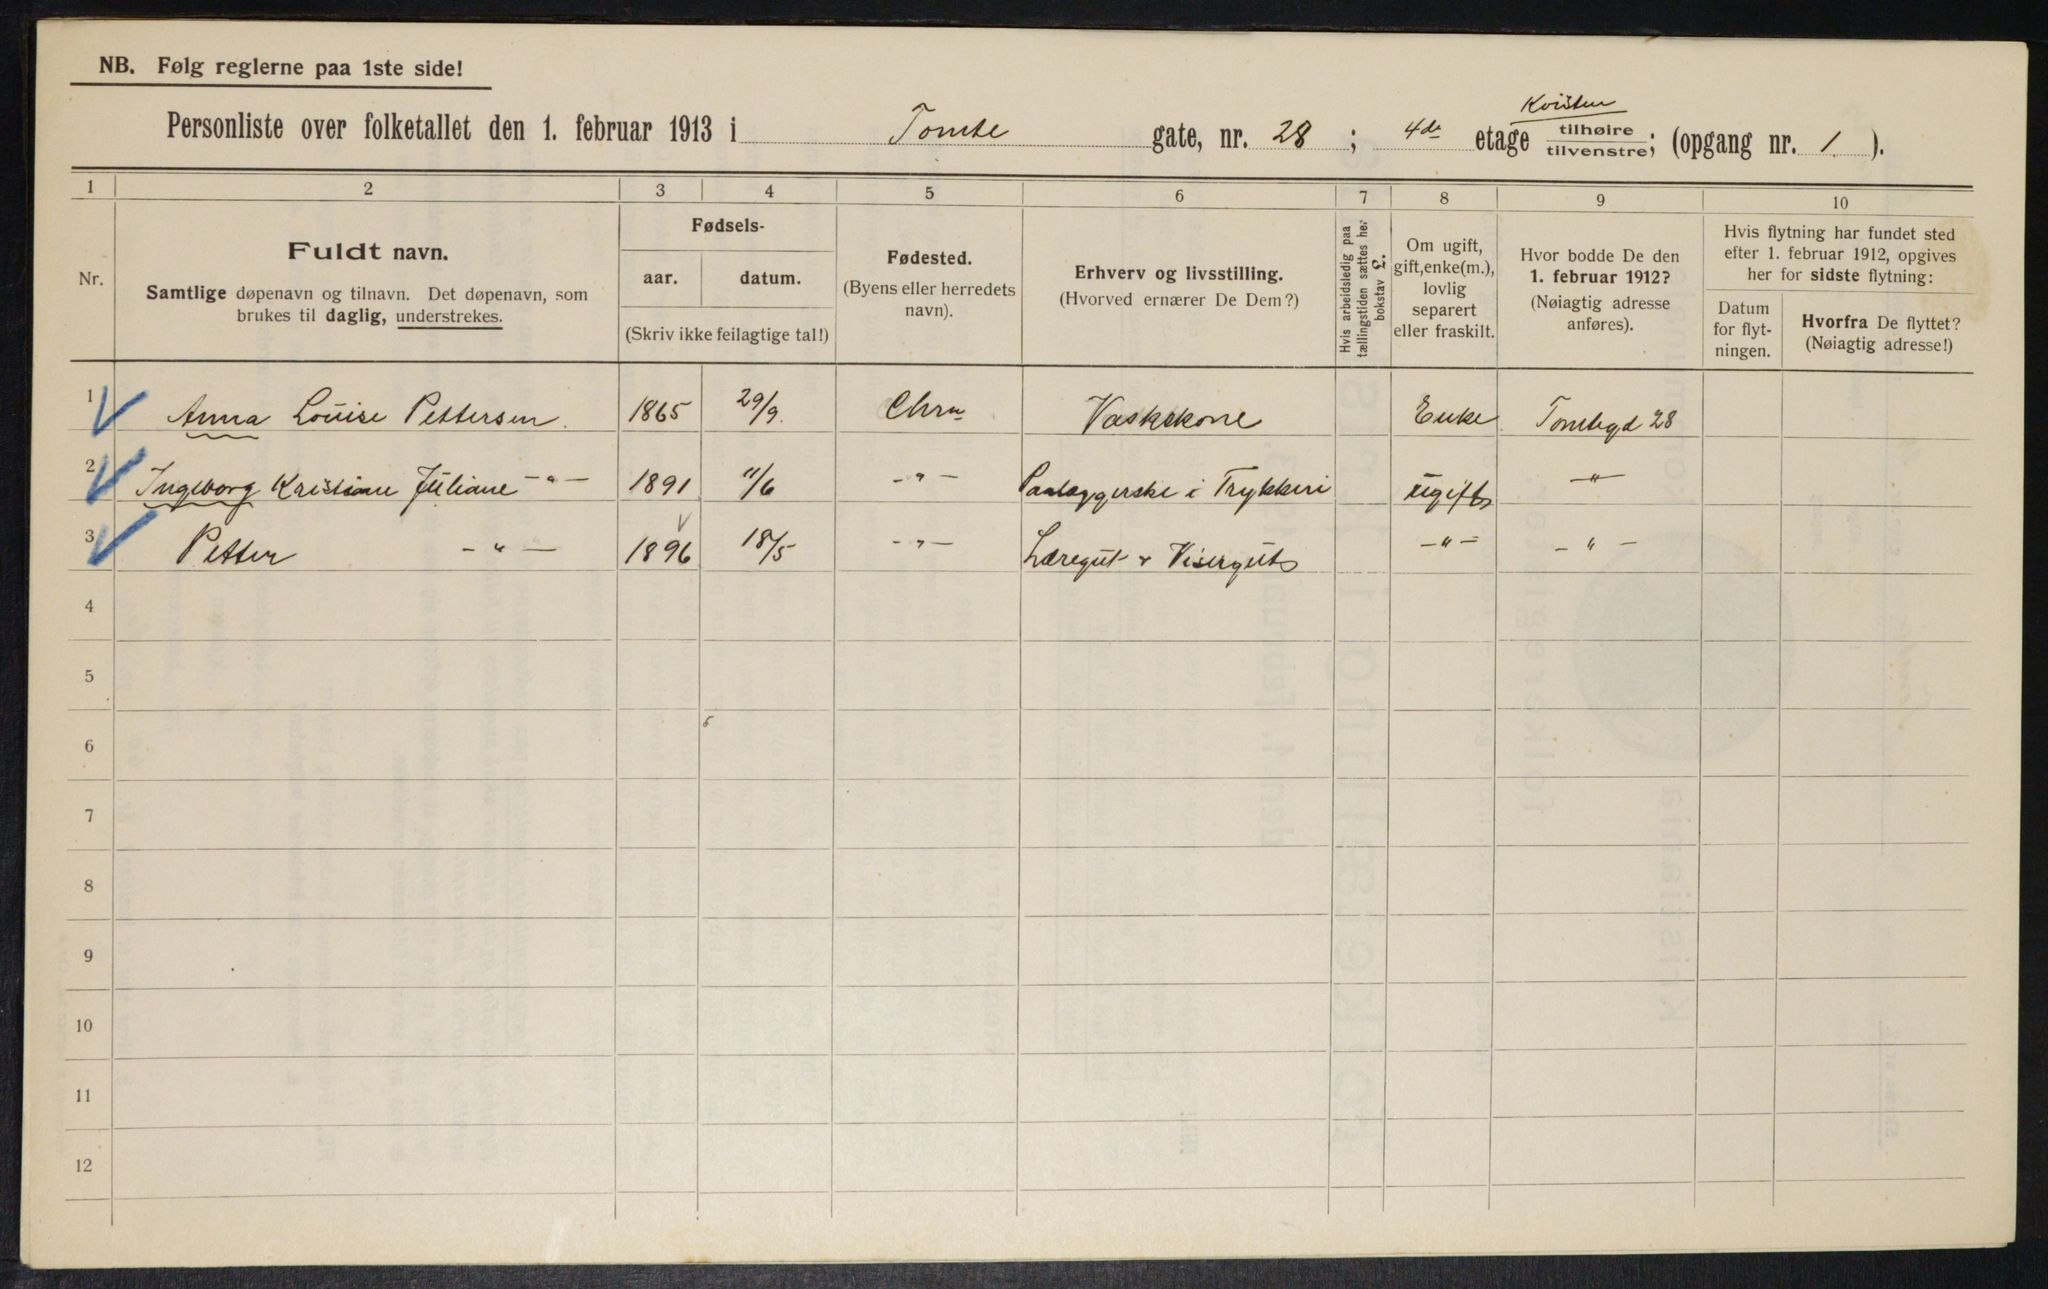 NB. Følg reglerne paa 1ste side!
Kvisten
Personliste over folketallet den 1. februar 1913 i Tomte gate, nr. 28; 4de etage tilhøire tilvenstre; (opgang nr. 1.).
1 2 3 4 5 6 7 8 9 10
Nr.
Fuldt navn.
Samtlige døpenavn og tilnavn. Det døpenavn, som
brukes til daglig, understrekes.
Fødsels-
aar. datum.
(Skriv ikke feilagtige tal!)
Fødested.
(Byens eller herredets
navn).
Erhverv og livsstilling.
(Hvorved ernærer De Dem?)
Hvis arbeidsledig paa
tællingstiden sættes her
bokstav L.
Om ugift,
gift, enke(m.),
lovlig
separert
eller fraskilt.
Hvor bodde De den
1. februar 1912?
(Nøiagtig adresse
anføres).
Hvis flytning har fundet sted
efter 1. februar 1912, opgives
her for sidste flytning:
Datum
for flyt-
ningen.
Hvorfra De flyttet?
(Nøiagtig adresse!)
1 Anna Louise Pettersen. 1865 29/9. Chra Vaskekone Enke Tomtegd 28
2 Ingeborg Kristiane Juliane -"- 1891 11/6 -"- Paalæggerske i Trykkeri ugift -"-
3 Petter -"- 1896 18/5 -"- Læregut & Visergut -"- -"-
4
5
6
7
8
9
10
11
12